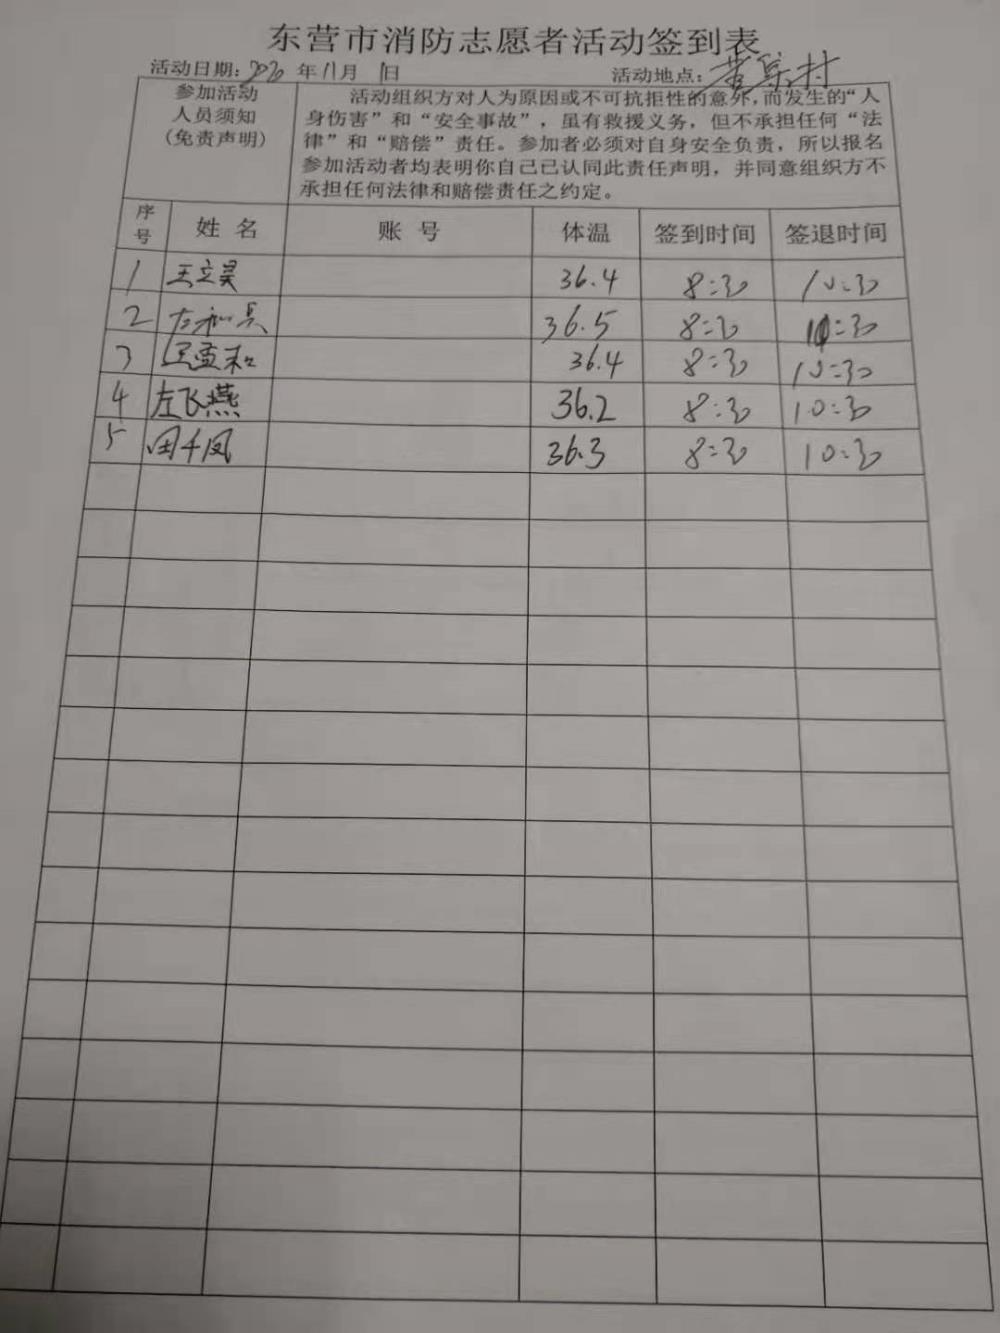 东营市消防志愿者活动签到表
活动日期：2020 年 11月 1日 活动地点：黄 村
参加活动
人员须知
(免责声明)
活动组织方对人为原因或不可抗拒性的意外，而发生的“人
身伤害”和“安全事故”，虽有救援义务，但不承担任何“法
律”和“赔偿”责任。参加者必须对自身安全负责，所以报名
参加活动者均表明你自己已认同此责任声明，并同意组织方不
承担任何法律和赔偿责任之约定。
序号 姓名 账号 体温 签到时间 签退时间
1 王立昊 36.4 8:30 10:30
2 36.5 8:30 10:30
3 王孟和 36.4 8:30 10:30
4 左飞燕 36.2 8:30 10:30
5 田千凤 36.3 8:30 10:30